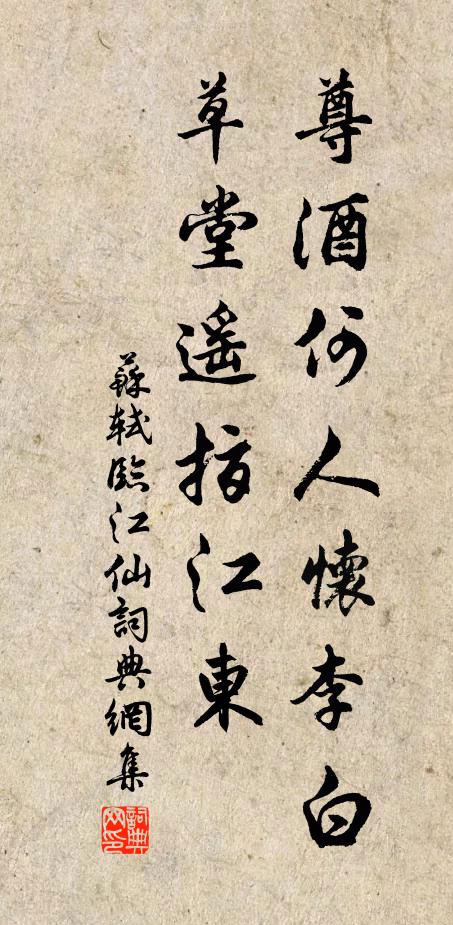 尊酒何人懷李白
草堂遥指江東
蘇軾臨江仙詞典網集
詞典
网印